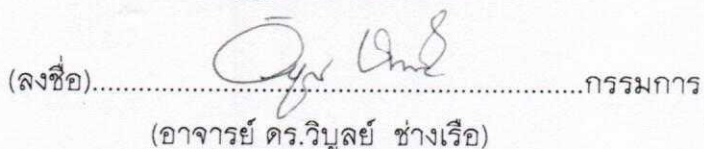 (ลงชื่อ)................................................................กรรมการ
(อาจารย์ ดร.วิบูลย์ ช่างเรือ)